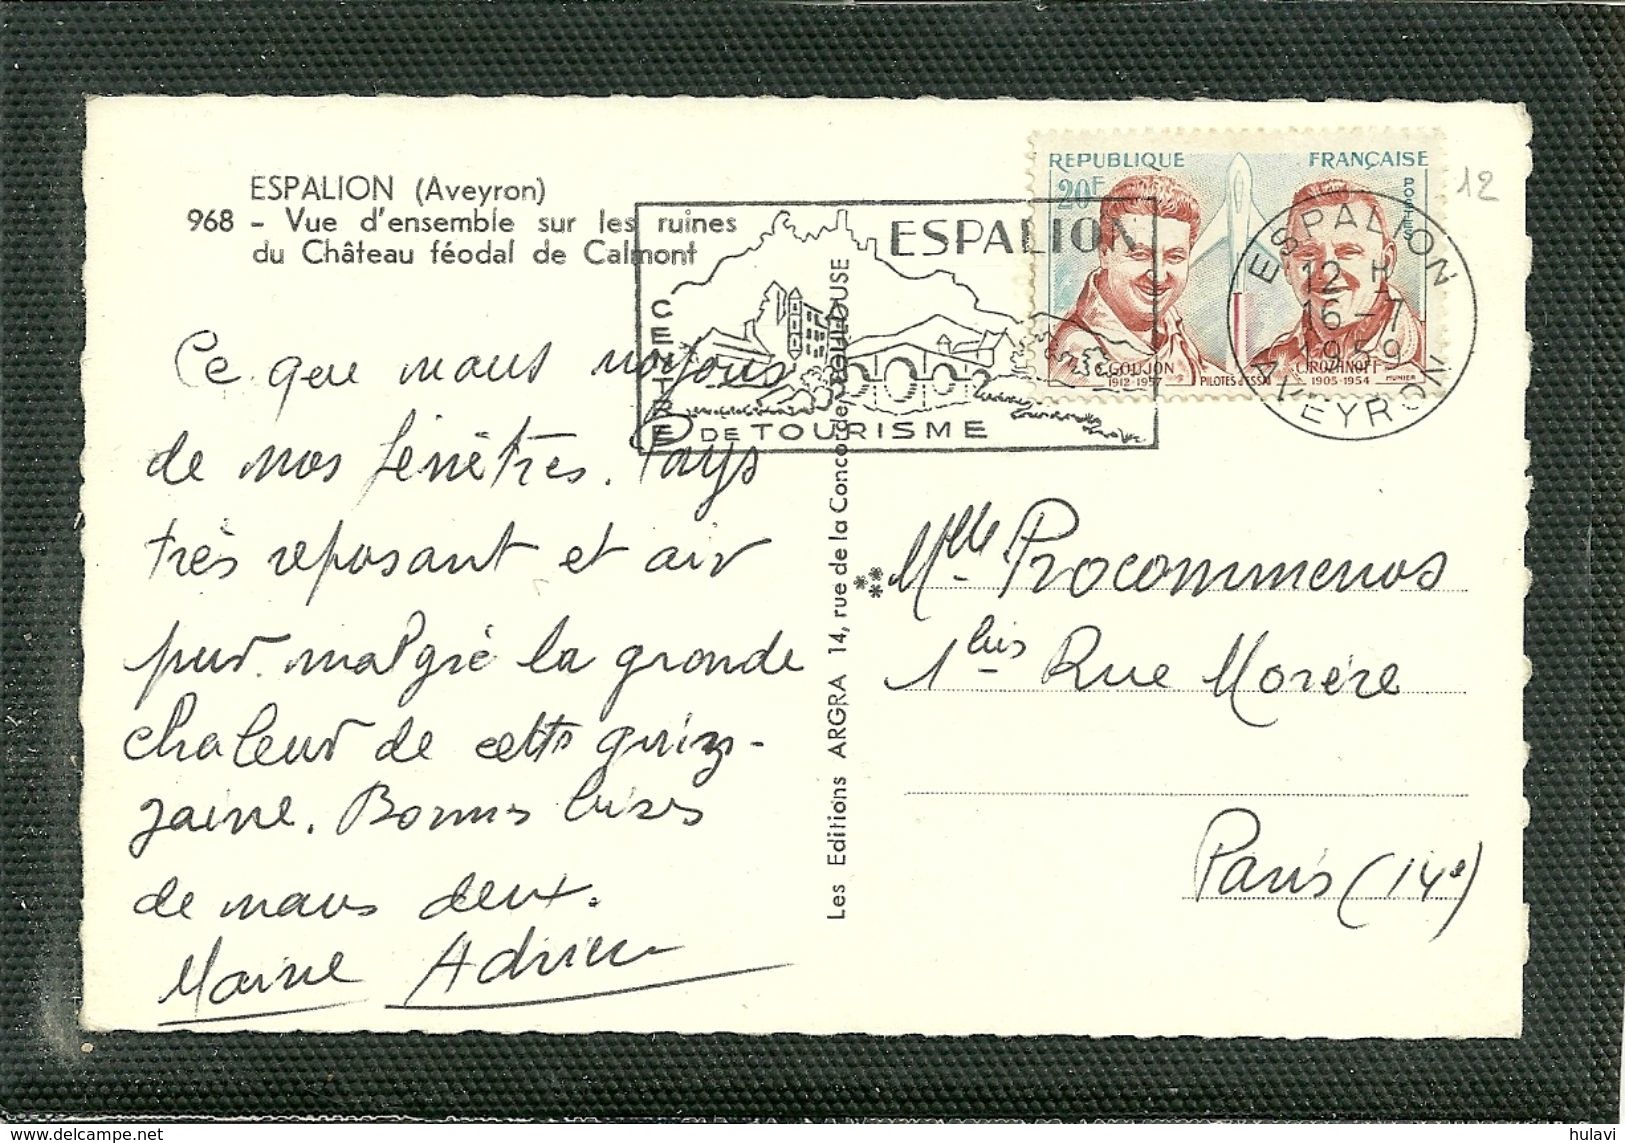 ESPALION (Aveyron)
968 - Vue d'ensemble sur les ruines
du Château féodal de Calmont
Ce que nous voyons
de nos fenêtres. Pays
très reposant et air
pur malgré la grande
chaleur de cette quin-
zaine. Bonnes bises
de nous deux.
Adrien
Les Editions ARGRA 14, rue de la Concorde, TOULOUSE
ESPALION
CENTRE
DE TOURISME
REPUBLIQUE FRANÇAISE
20F
POSTES
C.GOUJON
1912-1957
PILOTES d'ESSAI
C.ROZANOFF
1905-1954
MUNIER
ESPALION
12 H
16-7
1959
AVEYRON
12
Mlle Procommenos
1 bis Rue Morère
Paris (14e)
delcampe.net
hulavi